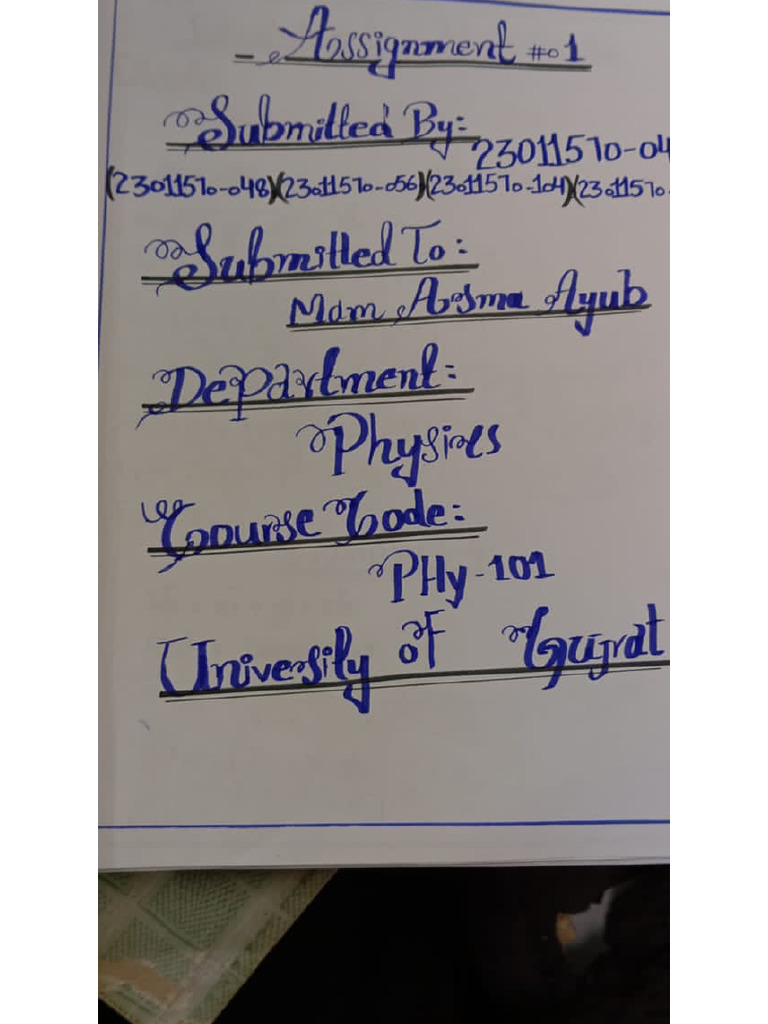 Assignment #01
Submitted By:
23011570-04
(23011570-048)(23011570-056)(23011570-104)(23011570-
Submitted To:
Mam Asma Ayub
Department:
Physics
Course Code:
PHy-101
University of Gujrat